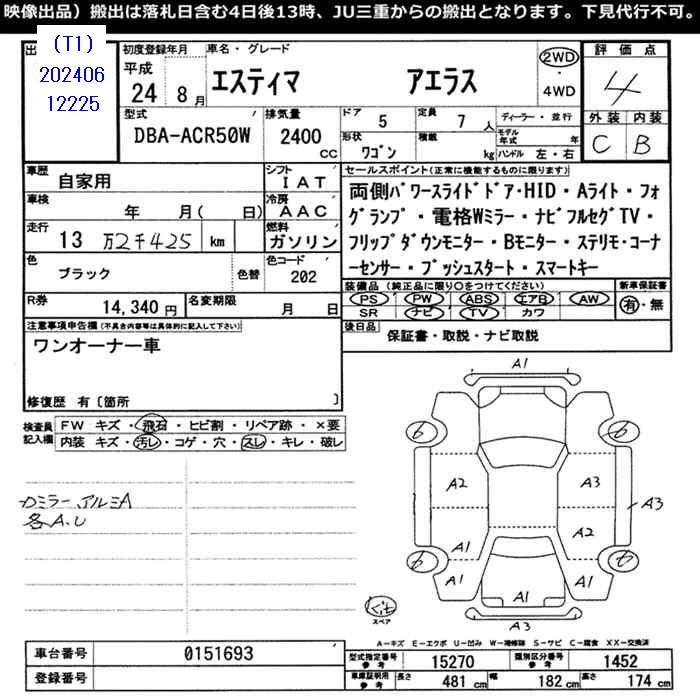 映像出品）搬出は落札日含む4日後13時、JU三重からの搬出となります。下見代行不可。
出
(T1)
202406
12225
初度登録年月
平成
24 8月
車名・グレード
エスティマ アエラス
2WD
・
4WD
評価点
4
外装 内装
C B
型式
DBA-ACR50W
排気量
2400
CC
ドア 5
定員 7 人
形状 ワゴン
積載 kg
ディーラー・並行
モデル年式 年
ハンドル 左・右
車歴
自家用
シフト
IAT
車検
年 月( 日)
冷房
AAC
走行
13 万2千425 km
燃料
ガソリン
色
ブラック
色替
色コード
202
R券
14,340 円
名変期限
月 日
セールスポイント(正常に機能するものに限ります)
両側パワースライドドア・HID・Aライト・フォ
グランプ・電格Wミラー・ナビフルセグTV・
フリップダウンモニター・Bモニター・ステリモ・コーナ
ーセンサー・プッシュスタート・スマートキー
装備品(純正品に限り○をつけてください)
PS PW ABS エアB AW
SR ナビ TV カワ
新車保証書
有・無
後日品
保証書・取説・ナビ取説
注意事項申告欄(不具合内容等は具体的に記入して下さい)
ワンオーナー車
修復歴 有〔箇所 〕
検査員
記入欄
FW キズ・飛石・ヒビ割・リペア跡・×要
内装 キズ・汚レ・コゲ・穴・スレ・キレ・破レ
カミラー、アルミA
各A.U
A1
6
6
A2
A3
A3
A2
A1
6
6
A1
A1
A1
A3
スペア
A－キズ E－エクボ U－凹み W－補修跡 S－サビ C－腐食 XX－交換済
車台番号
0151693
登録番号
型式指定番号
参考
15270
類別区分番号
参考
1452
車庫証明用
参考
長さ 481 cm
幅 182 cm
高さ 174 cm